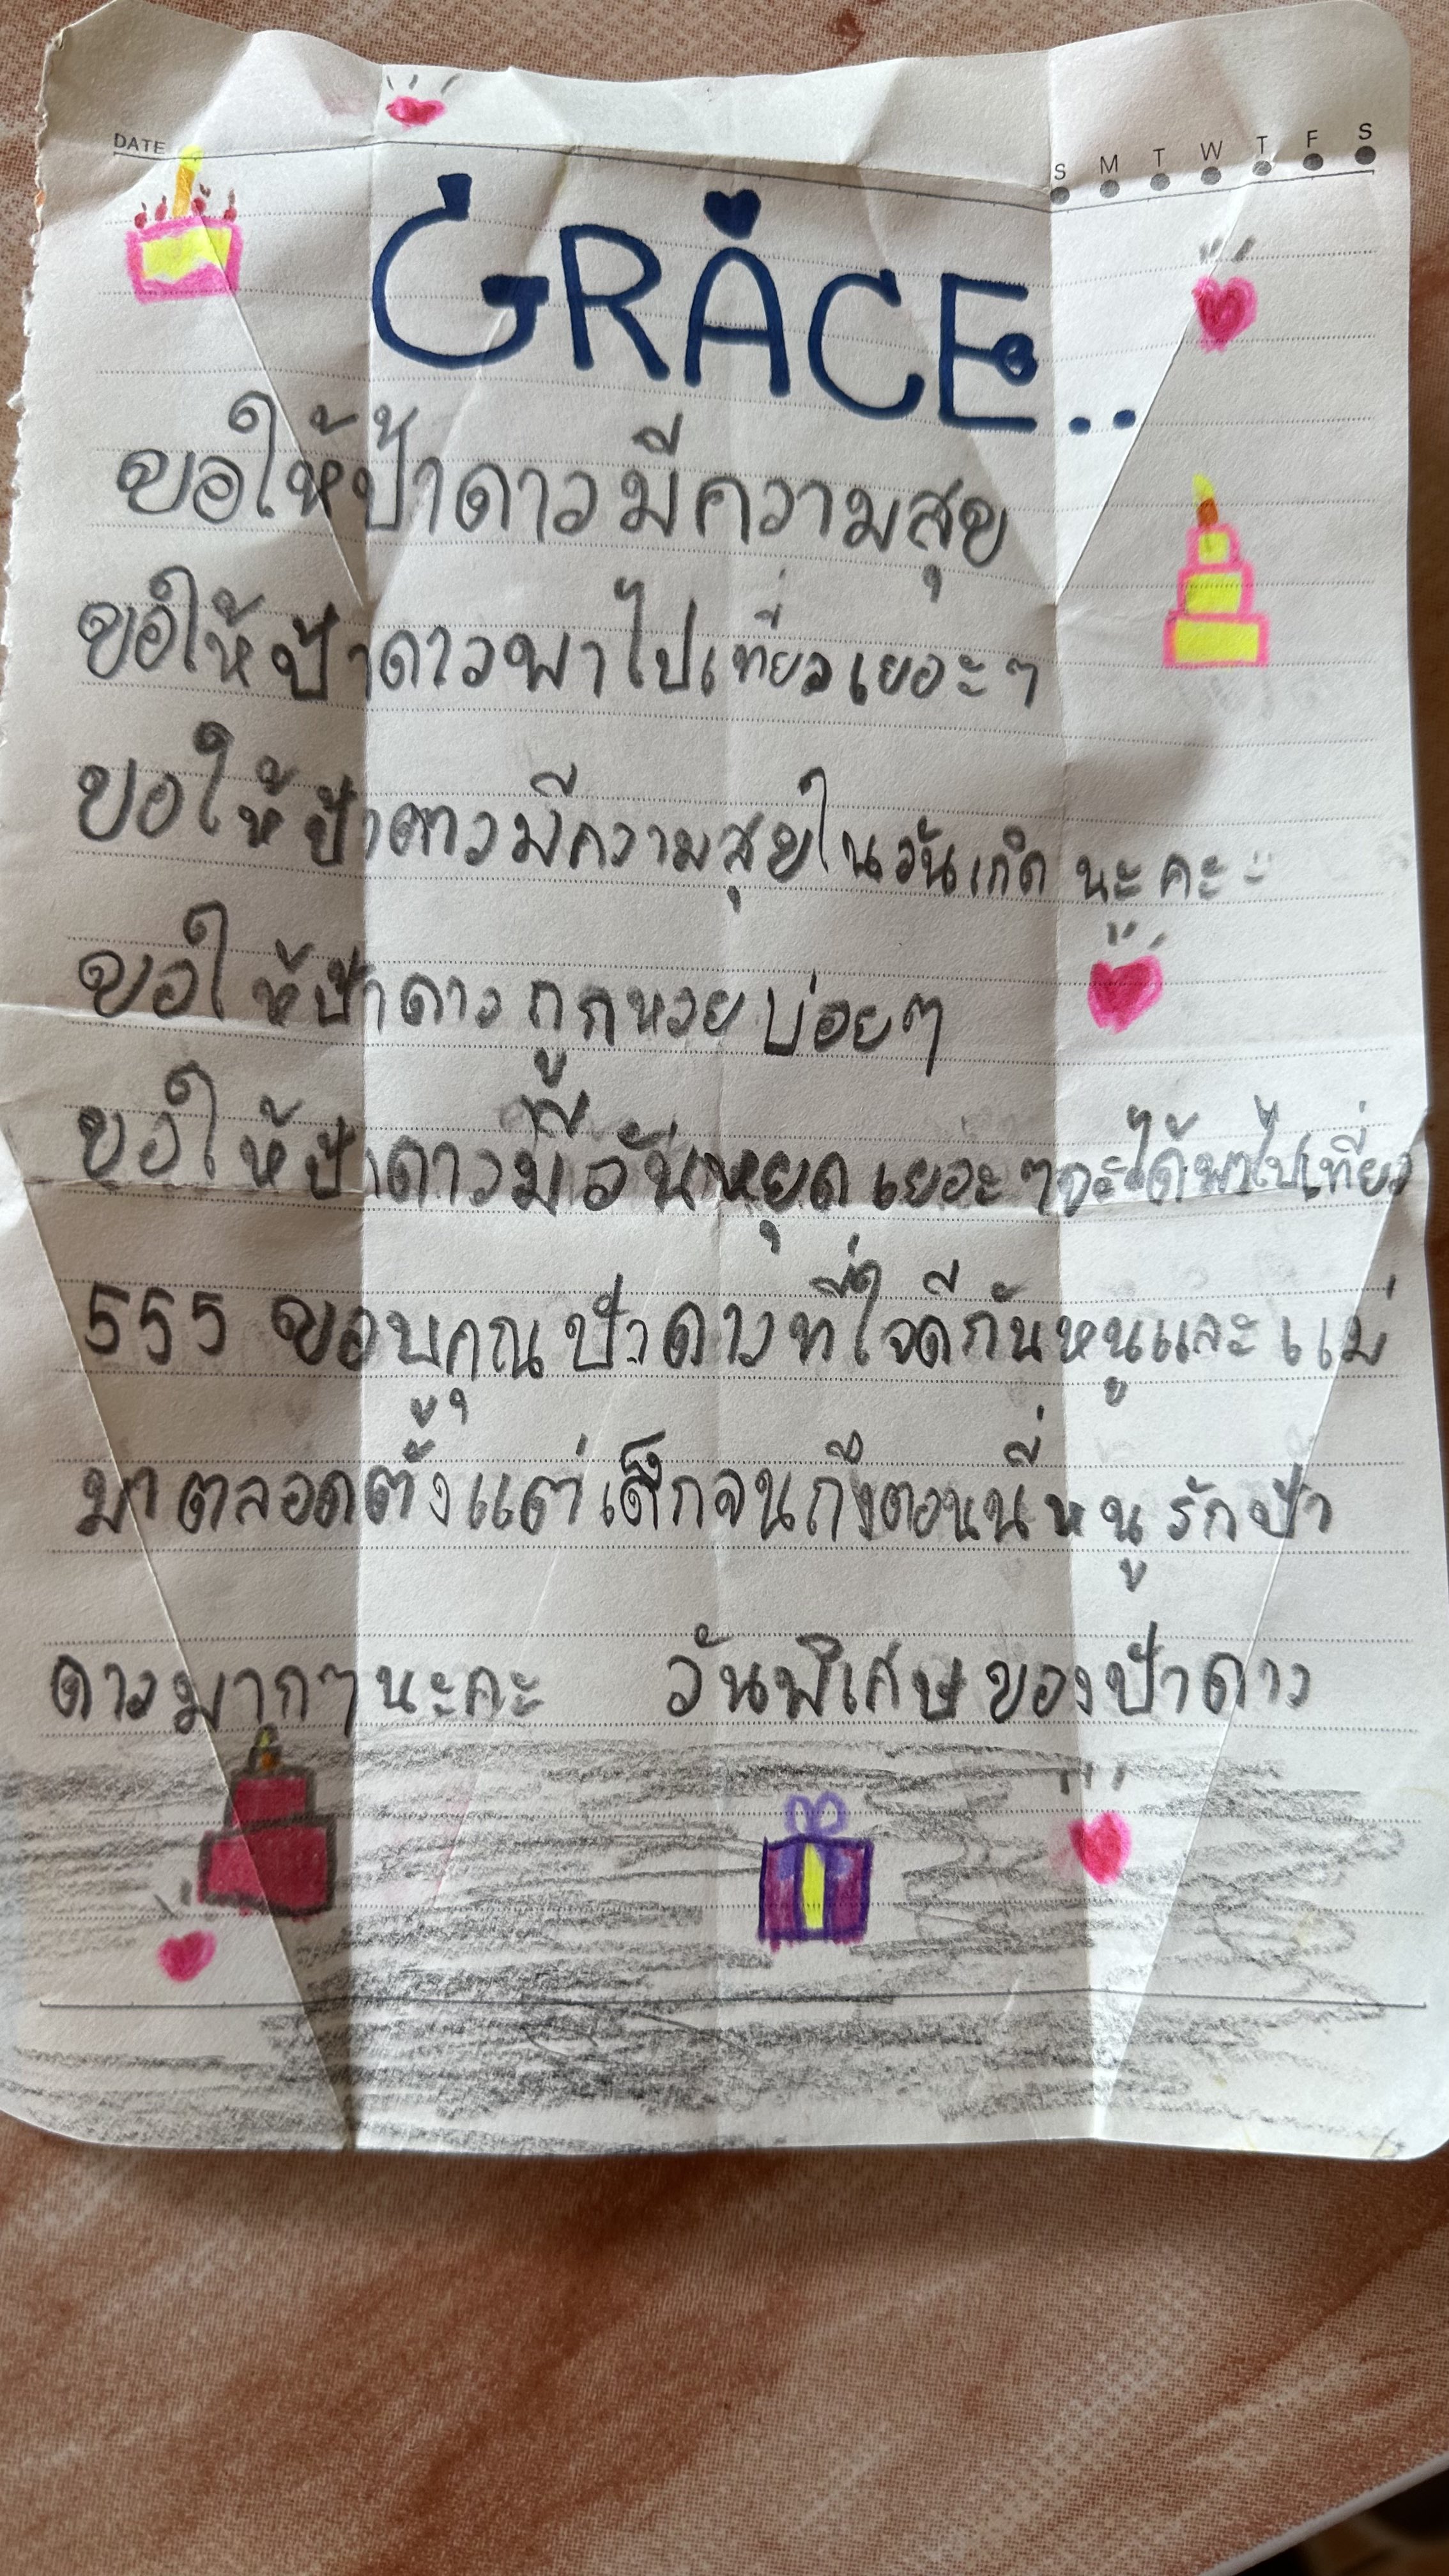 DATE
S M T W T F S
GRACE...
ขอให้ป้าดาวมีความสุข
ขอให้ป้าดาวพาไปเที่ยวเยอะๆ
ขอให้ป้าดาวมีความสุขในวันเกิด นะคะ
ขอให้ป้าดาว ถูกหวย บ่อยๆ
ขอให้ป้าดาวมีวันหยุด เยอะๆจะได้พาไปเที่ยว
555 ขอบคุณ ป้าดาวที่ใจดีกับหนูและแม่
มาตลอดตั้งแต่เด็กจนถึงตอนนี้ หนู รักป้า
ดาวมากๆนะคะ วันพิเศษของป้าดาว